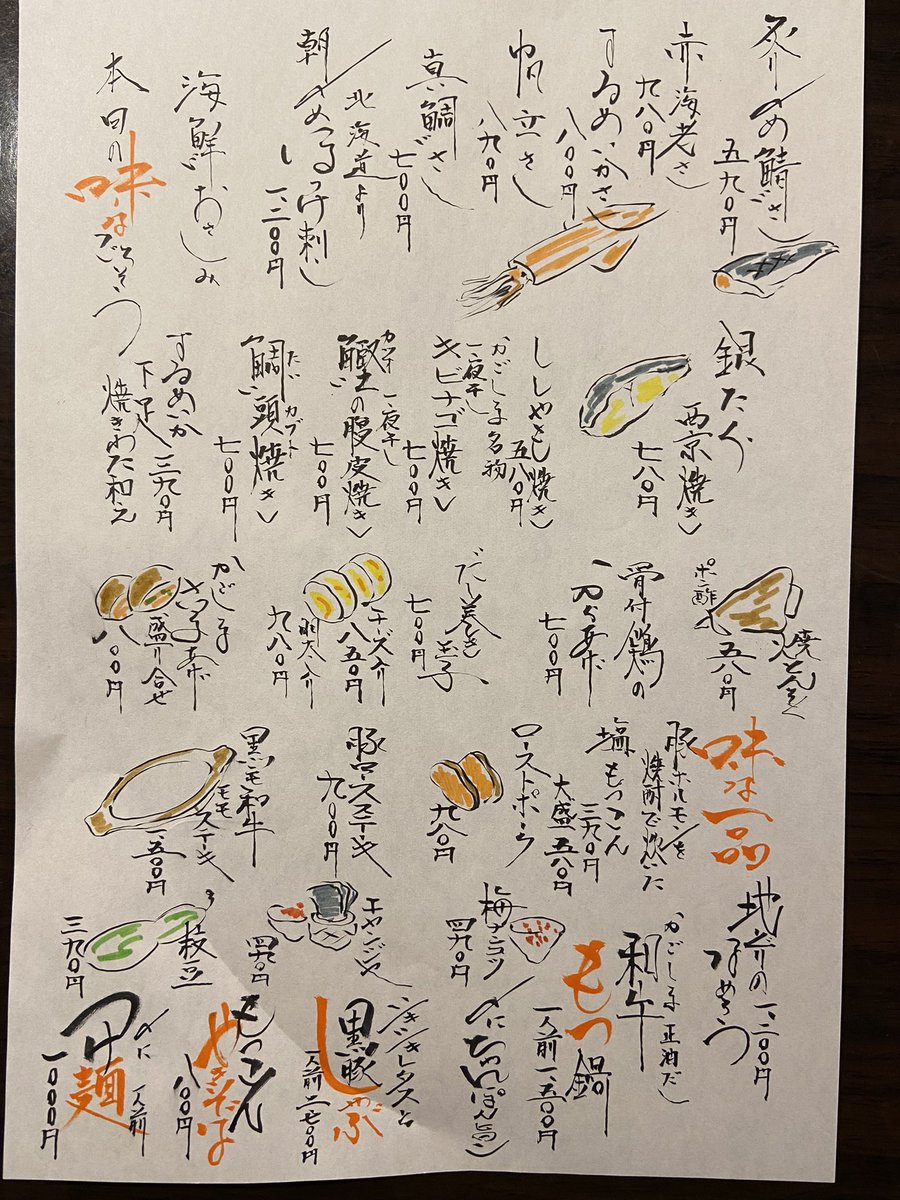 炙〆め鯖ざさ
五九〇円
赤海老さ
九八〇円
するめいかさ
八八〇円
帆立さし
八九〇円
真鯛ざし
七〇〇円
朝〆め
北海道より
つけ刺し
一、二〇〇円
海鮮おさしみ
本日の味なごちそう
銀だら
西京焼き
七八〇円
ししゃも焼き
五八〇円
かごしま名物
一夜干し
キビナゴ焼き
七〇〇円
カツオ一夜干し
鰹の腹皮焼き
七〇〇円
たいカブト
鯛頭焼き
七〇〇円
するめいか
下足
三九〇円
焼きわた和え
焼とんそく
ポン酢
五八〇円
骨付鶏の
から揚げ
七〇〇円
だし巻き玉子
七〇〇円
チーズ入り
八五〇円
明太入り
九八〇円
かごしま
さつま揚げ
盛り合せ
八〇〇円
味な一品
豚ホルモンを
焼酎で炊いた
塩もつこん
三九〇円
大盛五八〇円
ローストポーク
九八〇円
豚ロースステーキ
九〇〇円
黒毛和牛
モモステーキ
一、五〇〇円
地の
一、二〇〇円
かごしま正油だし
和牛
もつ鍋
一人前一、五〇〇円
〆にちゃんぽん
梅
四九〇円
エヤンジャ
四九〇円
枝豆
三九〇円
シャキシャキレタスと
黒豚しゃぶ
一人前二、七〇〇円
もつこん
やきそば
八〇〇円
〆に
一人前
つけ麺
一〇〇〇円